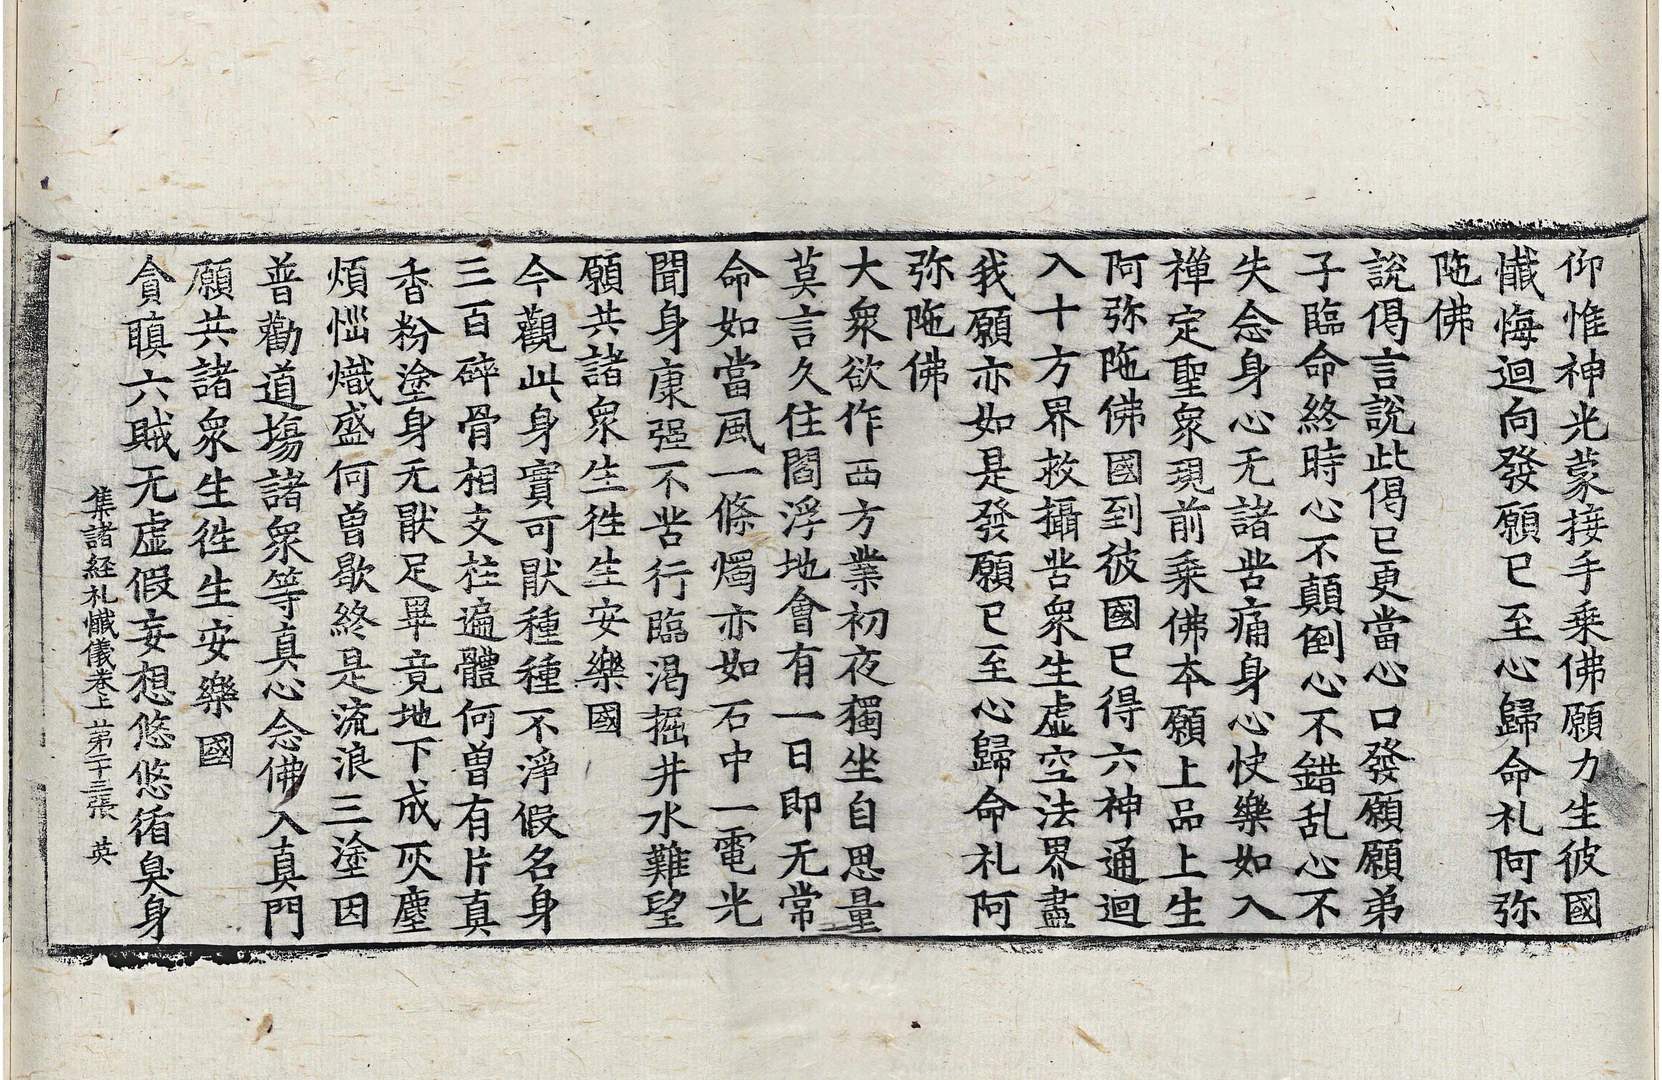 仰惟神光蒙接手乗佛願力生彼國
懺悔迴向發願已至心歸命礼阿弥
陁佛
說偈言說此偈已更當心口發願願弟
子臨命終時心不顛倒心不錯乱心不
失念身心无諸苦痛身心快樂如入
禅定聖衆現前乗佛本願上品上生
阿弥陁佛國到彼國已得六神通迴
入十方界救攝苦衆生虛空法界盡
我願亦如是發願已至心歸命礼阿
弥陁佛
大衆欲作西方業初夜獨坐自思量
莫言久住閻浮地會有一日即无常
命如當風一條燭亦如石中一電光
聞身康强不苦行臨渴掘井水難望
願共諸衆生徃生安樂國
今觀此身實可猒種種不淨假名身
三百碎骨相支拄遍體何曽有片真
香粉塗身无猒足畢竟地下成灰塵
煩惱熾盛何曽歇終是流浪三塗因
普勸道塲諸衆等真心念佛入真門
願共諸衆生徃生安樂國
貪瞋六賊无虛假妄想悠悠循臭身
集諸經礼懺儀卷上 苐二十三張 英